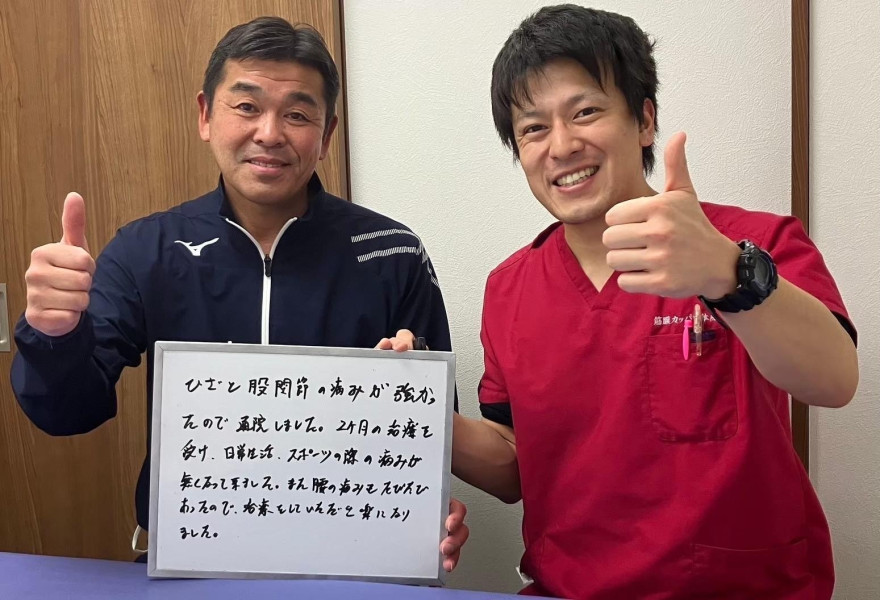 ひざと股関節の痛みが強かっ
たので通院しました。2ヶ月の治療を
受け、日常生活、スポーツの際の痛みが
無くなって来ました。また腰の痛みもたびたび
あったので、治療をしていただき楽になり
ました。
筋膜